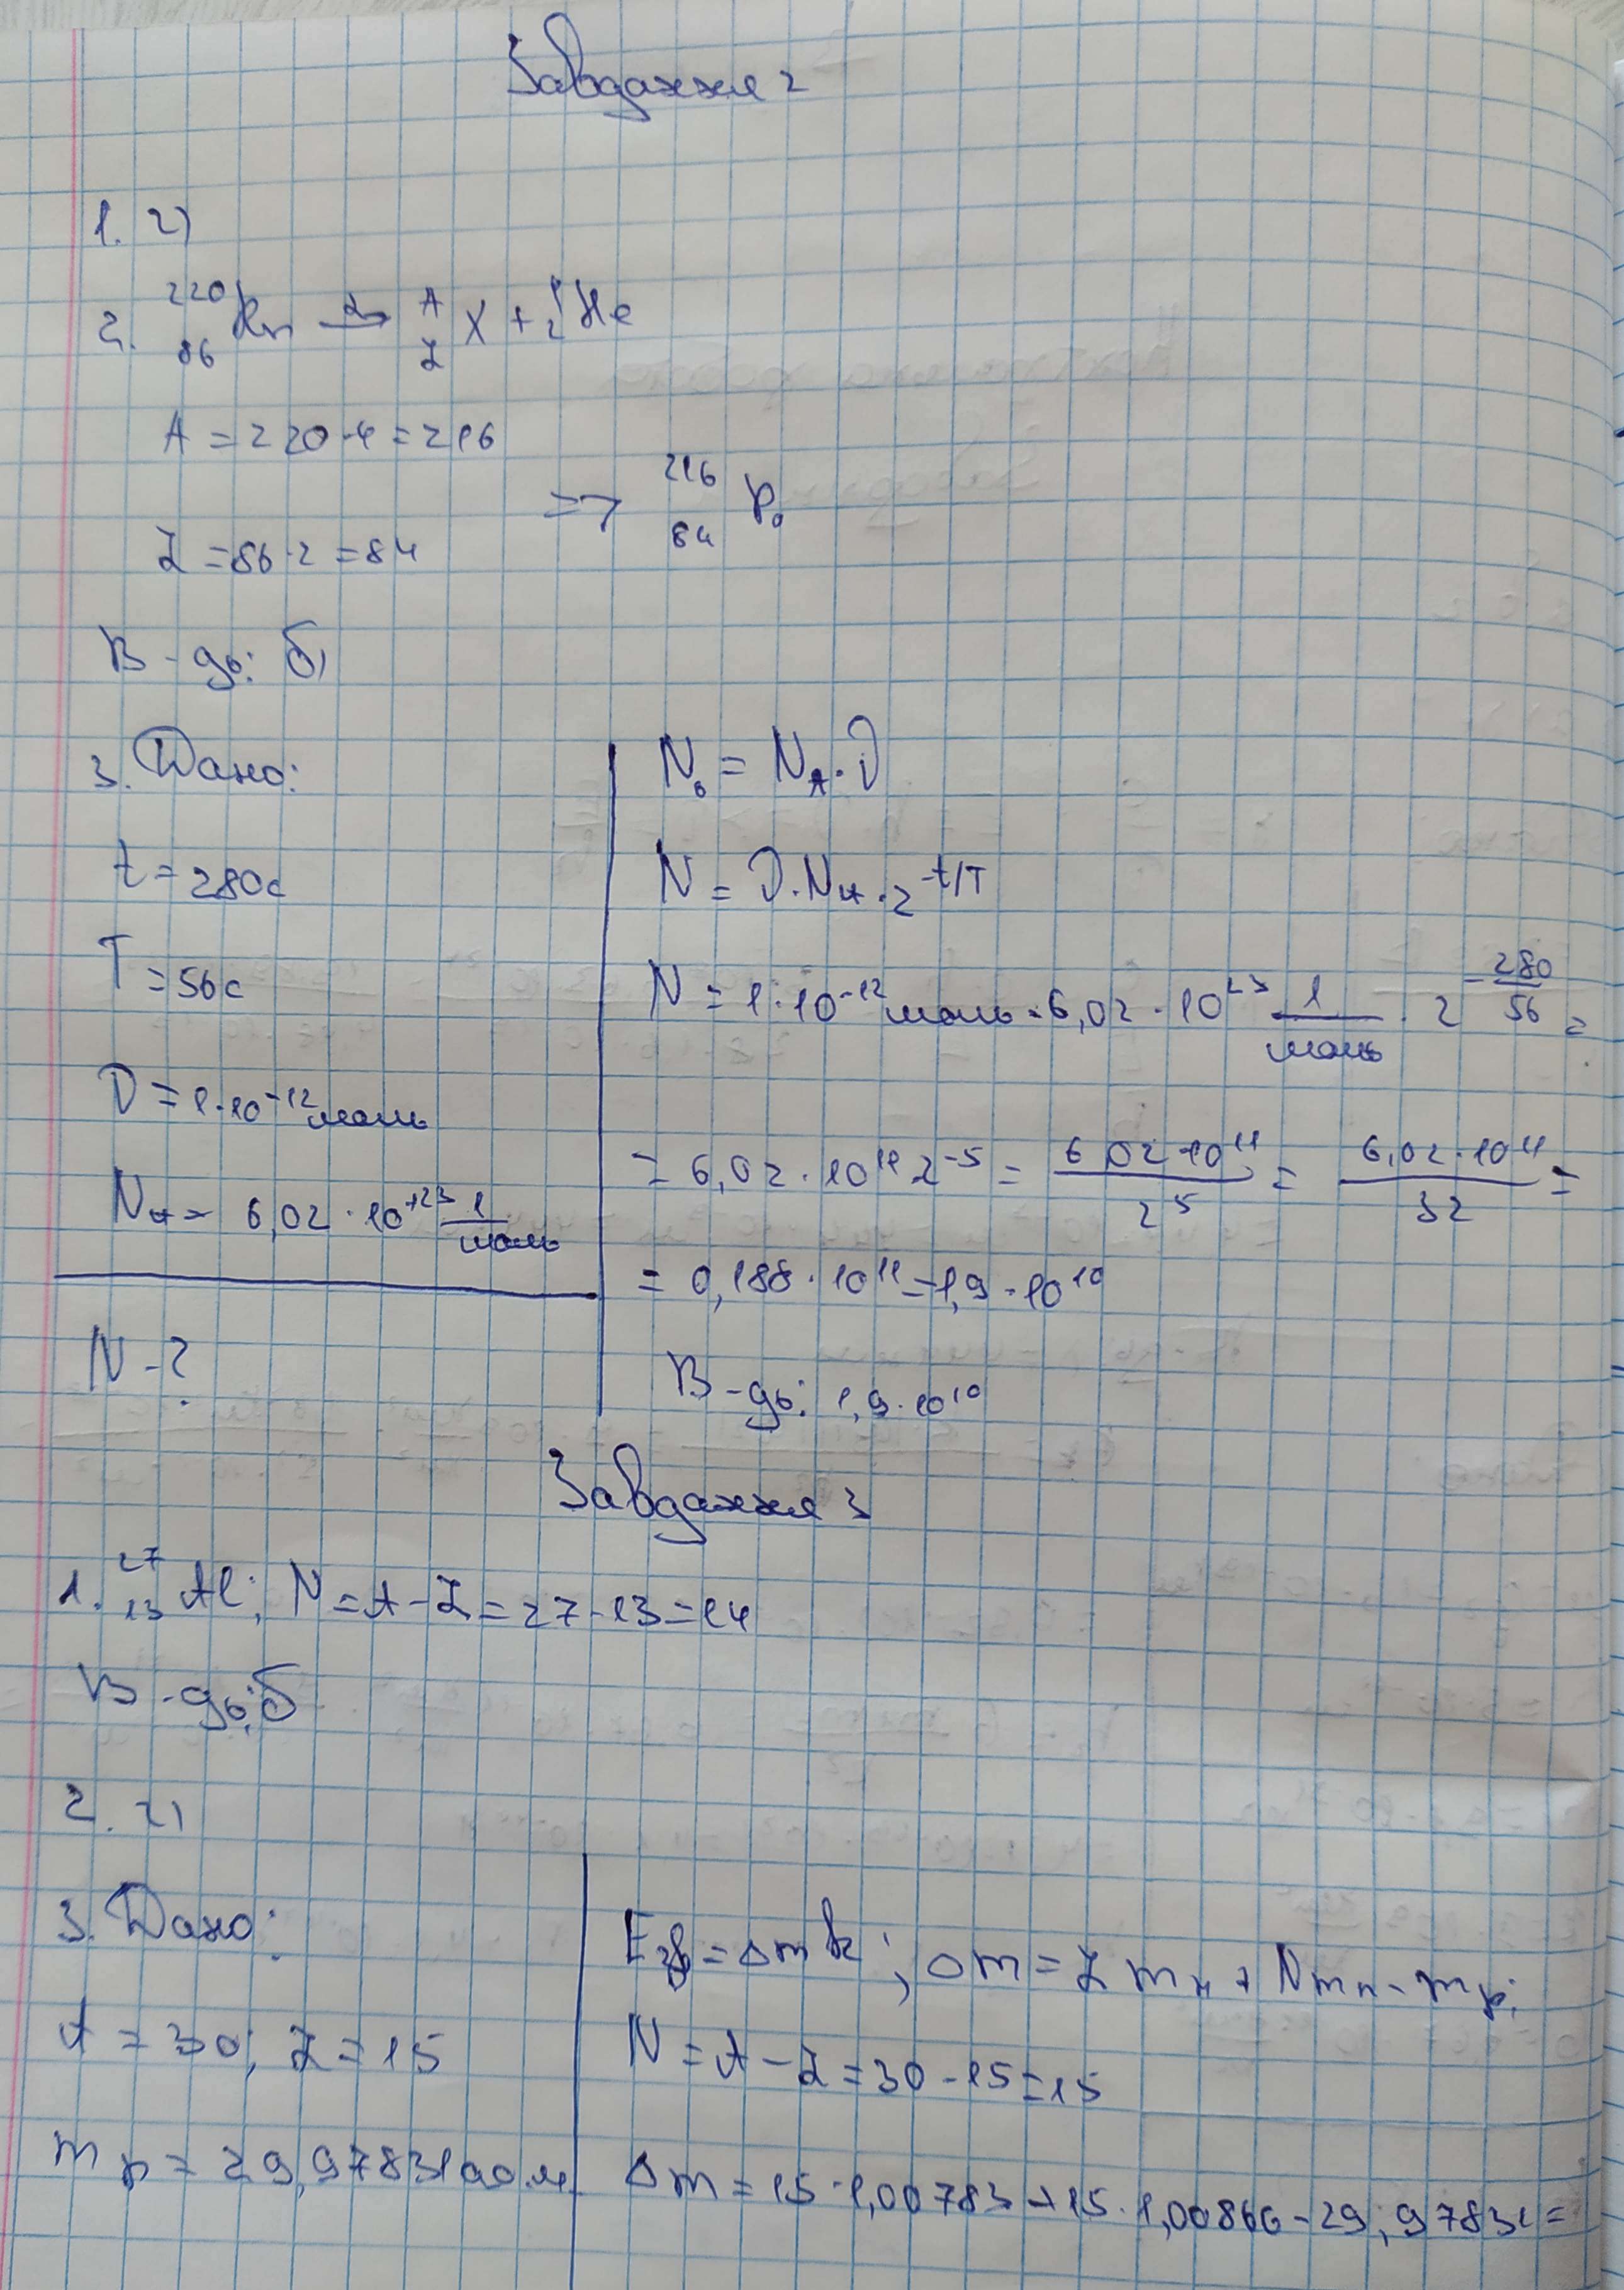 Завдання 2
1. г)
2. ²²⁰₈₆Rn →α ᴬ_Z X + ⁴₂He
A = 220-4 = 216
=> ²¹⁶₈₄Po
Z = 86-2 = 84
В-дь: б)
3. Дано:
t = 280c
T = 56c
ν = 1·10⁻¹² моль
N_A = 6,02·10⁺²³ 1/моль
N-?
N₀ = N_A·ν
N = ν·N_A·2^(-t/T)
N = 1·10⁻¹² моль·6,02·10²³ 1/моль · 2^(-280/56) =
= 6,02·10¹¹ 2⁻⁵ = 6 02·10¹¹/2⁵ = 6,02·10¹¹/32 =
= 0,188·10¹¹ = 1,9·10¹⁰
В-дь: 1,9·10¹⁰
Завдання 3
1. ²⁷₁₃Al; N = A-Z = 27-13 = 14
В-дь: б
2. г)
3. Дано:
A = 30; Z = 15
m_p = 29,97831 а.о.м.
E_зв = Δm k; Δm = Z m_н + N m_n - m_p;
N = A-Z = 30-15 = 15
Δm = 15·1,00783 + 15·1,00866 - 29,97831 =